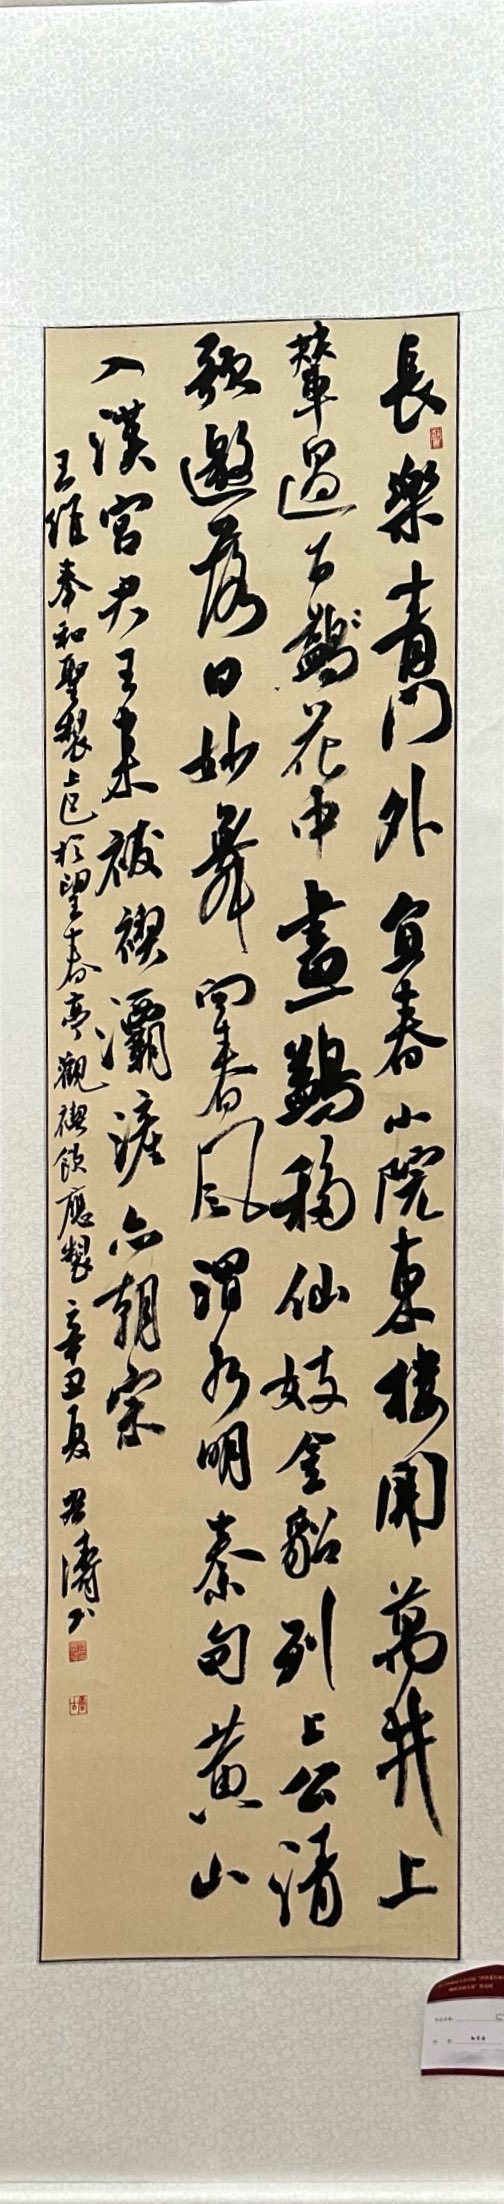 長樂青門外宜春小院東樓開萬井上
輦過百鷁花中畫鷁移仙妓金貂列上公清
歌邀落日妙舞向春風渭水明秦甸黃山
入漢宮君王來祓禊灞滻亦朝宗
王維奉和聖製上巳於望春亭觀禊飲應製 辛丑夏 濤書